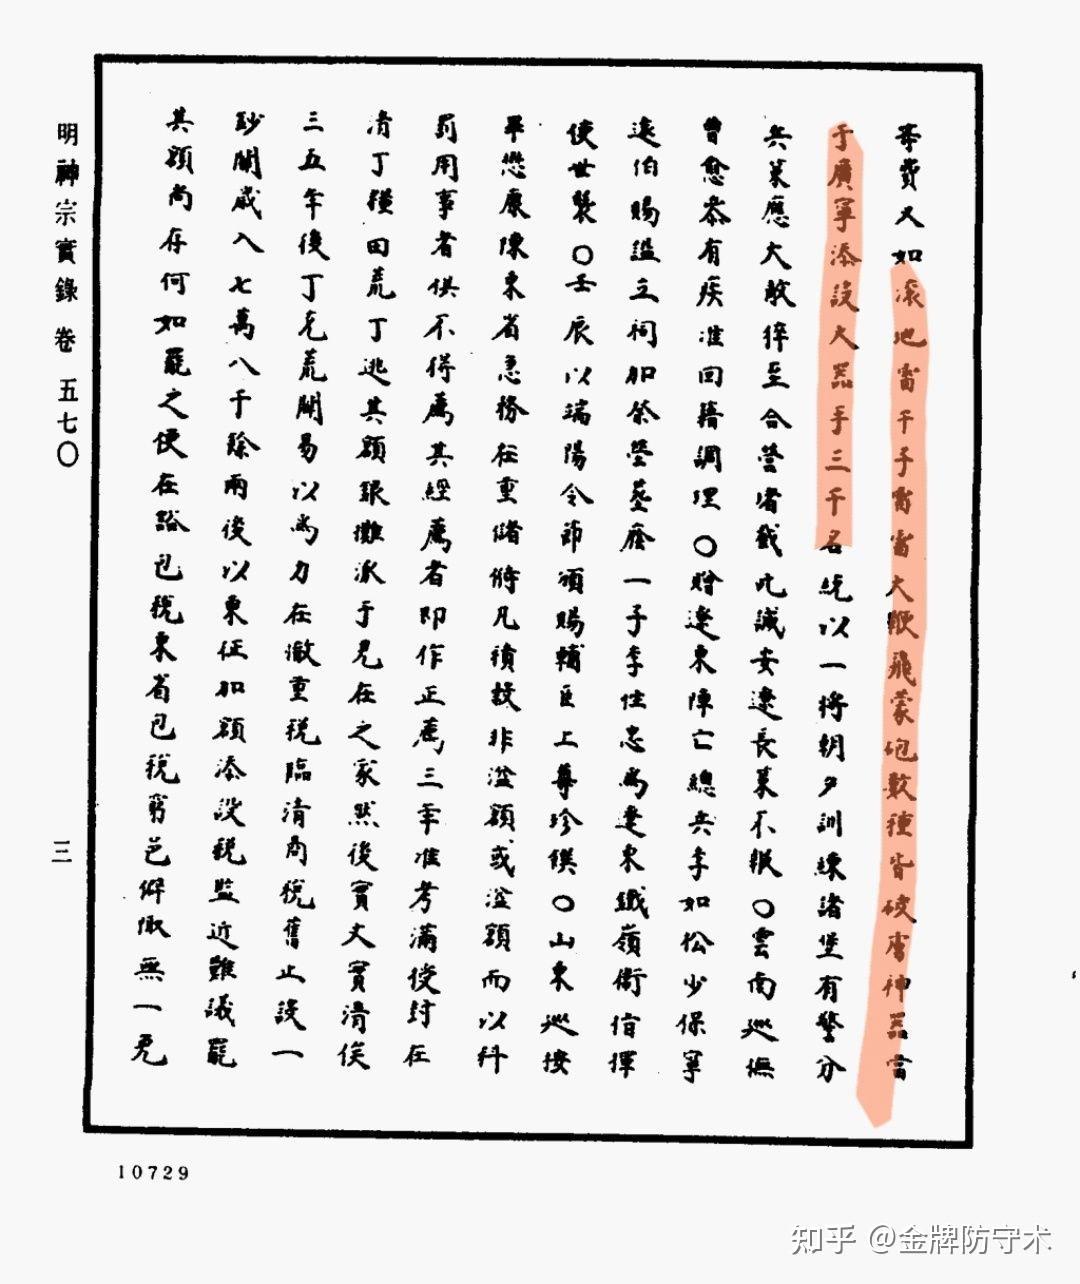 等費又如滾地雷千子雷雷大鞭飛蒙砲數種皆破膚神器當
于廣寧添設大器手三千名統以一將朝夕訓練諸堡有警分
兵策應大敵猝至合營堵截此誠安遼長策不報〇雲南巡撫
曾愈叅有疾准回籍調理〇贈遼東陣亡總兵李如松少保寧
遠伯賜謚立祠加祭塋塟廕一子李性忠為遼東鐵嶺衛指揮
使世襲〇壬辰以端陽令節頒賜輔臣上尊珍饌〇山東巡按
畢懋康陳東省急務在重儲將凡積穀非溢額或溢額而以科
罰用事者俱不得薦其經薦者即作正薦三年准考滿使封在
清丁種田荒丁逃其額報攤派于見在之家然後實丈實清俟
三五年後丁充荒開易以為力在澈重税臨清商税舊止設一
鈔關歲入七萬八千餘兩後以東征加額添設税監近難議罷
其額尚存何如罷之便在豁包税東省包税窮邑僻取無一免
明神宗實錄 卷五七〇
三
10729
知乎 @金牌防守术